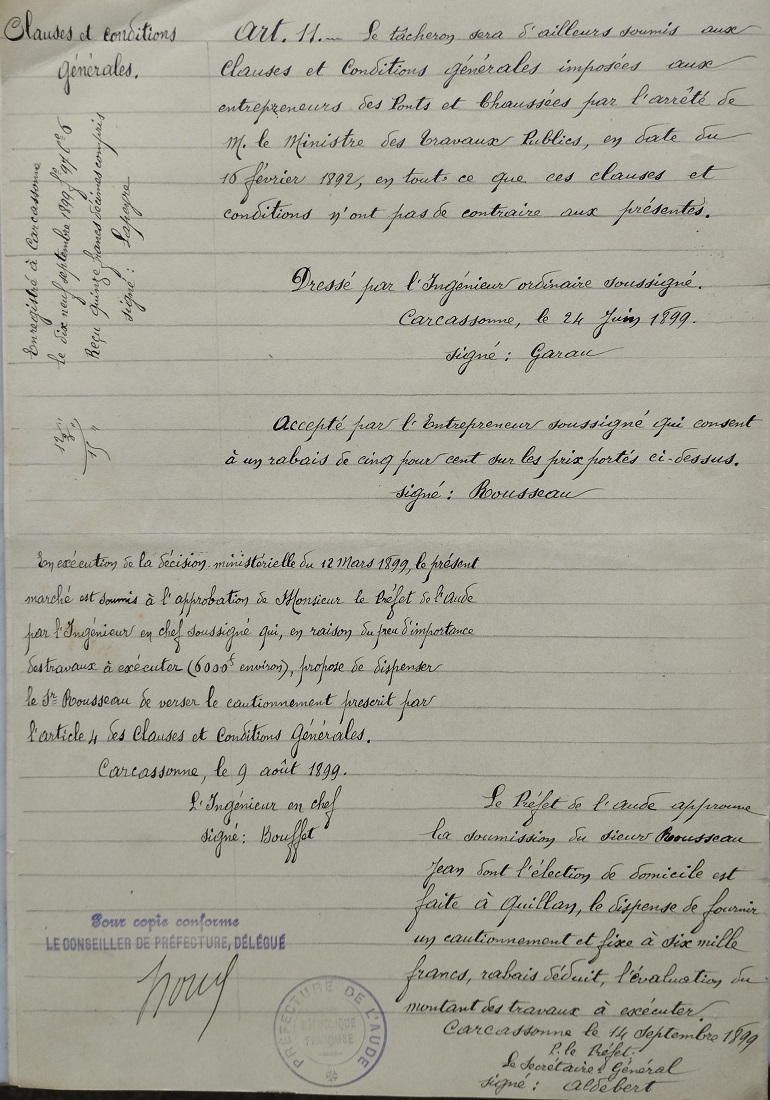 Clauses et conditions
générales.
Art. 11. — Le tâcheron sera d'ailleurs soumis aux
Clauses et Conditions générales imposées aux
entrepreneurs des Ponts et Chaussées par l'arrêté de
M. le Ministre des Travaux Publics, en date du
16 février 1892, en tout ce que ces clauses et
conditions n'ont pas de contraire aux présentes.
Enregistré à Carcassonne
le dix neuf septembre 1899 f° 97 C° 6
Reçu quinze francs décimes compris
signé : Lapeyre
Dressé par l'Ingénieur ordinaire soussigné.
Carcassonne, le 24 Juin 1899.
signé : Garau
12 "
3 "
15 "
Accepté par l'Entrepreneur soussigné qui consent
à un rabais de cinq pour cent sur les prix portés ci-dessus.
signé : Rousseau
En exécution de la décision ministérielle du 12 Mars 1899, le présent
marché est soumis à l'approbation de Monsieur le Préfet de l'Aude
par l'Ingénieur en chef soussigné qui, en raison du peu d'importance
des travaux à exécuter (6000f environ), propose de dispenser
le Sr Rousseau de verser le cautionnement prescrit par
l'article 4 des Clauses et Conditions Générales.
Carcassonne, le 9 août 1899.
L'Ingénieur en chef
signé : Bouffet
Le Préfet de l'Aude approuve
la soumission du sieur Rousseau
Jean dont l'élection de domicile est
faite à Quillan, le dispense de fournir
un cautionnement et fixe à six mille
francs, rabais déduit, l'évaluation du
montant des travaux à exécuter.
Carcassonne le 14 septembre 1899
P. le Préfet.
Le Secrétaire Général
signé : Aldebert
Pour copie conforme
LE CONSEILLER DE PRÉFECTURE, DÉLÉGUÉ
PRÉFECTURE DE L'AUDE
RÉPUBLIQUE
FRANÇAISE